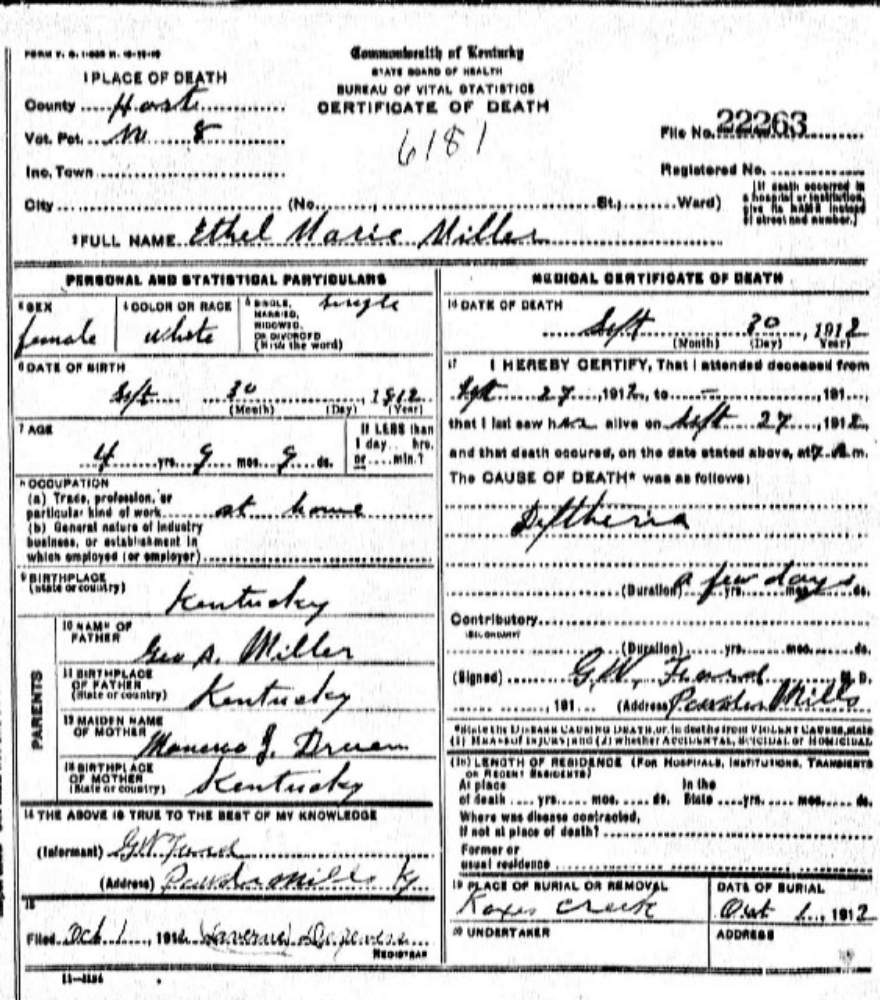 Commonwealth of Kentucky
STATE BOARD OF HEALTH
BUREAU OF VITAL STATISTICS
CERTIFICATE OF DEATH
1 PLACE OF DEATH
County Hart
Vot. Pct. 8
Inc. Town
City (No. , St.; Ward)
6181
File No. 22263
Registered No.
(If death occurred in
a hospital or institution,
give its NAME instead
of street and number.)
2 FULL NAME Ethel Marie Miller
PERSONAL AND STATISTICAL PARTICULARS
3 SEX
female
4 COLOR OR RACE
white
5 SINGLE,
MARRIED,
WIDOWED,
OR DIVORCED
(Write the word)
single
6 DATE OF BIRTH
Sept 30, 1912
(Month) (Day) (Year)
7 AGE
4 yrs. 9 mos. 9 ds.
If LESS than
1 day.. hrs.
or .... min.?
8 OCCUPATION
(a) Trade, profession, or
particular kind of work at home
(b) General nature of industry
business, or establishment in
which employed (or employer)
9 BIRTHPLACE
(State or country)
Kentucky
PARENTS
10 NAME OF
FATHER
Geo A. Miller
11 BIRTHPLACE
OF FATHER
(State or country)
Kentucky
12 MAIDEN NAME
OF MOTHER
J. Druen
13 BIRTHPLACE
OF MOTHER
(State or country)
Kentucky
14 THE ABOVE IS TRUE TO THE BEST OF MY KNOWLEDGE
(Informant) G.W.
(Address) Mills Ky
15
Filed Oct 1, 1912
REGISTRAR
11—3184
MEDICAL CERTIFICATE OF DEATH
16 DATE OF DEATH
Sept 30, 1912
(Month) (Day) Year)
17 I HEREBY CERTIFY, That I attended deceased from
Sept 27, 1912, to — , 191...,
that I last saw her alive on Sept 27, 1912,
and that death occured, on the date stated above, at m.
The CAUSE OF DEATH* was as follows:
Diftheria
(Duration) a few days yrs. mos. ds.
Contributory
(SECONDARY)
(Duration) yrs. mos. ds.
(Signed) G.W. M. D.
, 191... (Address) Mills
*State the DISEASE CAUSING DEATH, or, in deaths from VIOLENT CAUSES, state
(1) MEANS OF INJURY; and (2) whether ACCIDENTAL, SUICIDAL or HOMICIDAL
(18) LENGTH OF RESIDENCE (FOR HOSPITALS, INSTITUTIONS, TRANSIENTS
OR RECENT RESIDENTS)
At place In the
of death .... yrs. .... mos. .... ds. State .... yrs. .... mos. .... ds.
Where was disease contracted,
if not at place of death?
Former or
usual residence
19 PLACE OF BURIAL OR REMOVAL
Creek
DATE OF BURIAL
Oct 1, 1912
20 UNDERTAKER
ADDRESS